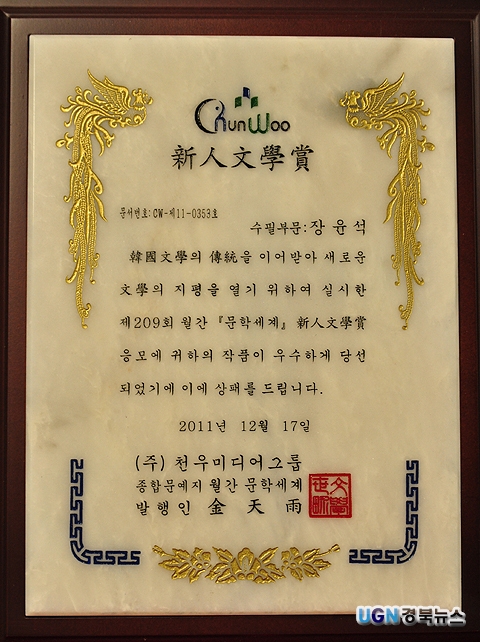 ChunWoo
新人文學賞
문서번호:CW-제11-0353호
수필부문:장윤석
韓國文學의 傳統을 이어받아 새로운
文學의 지평을 열기 위하여 실시한
제209회 월간 『문학세계』 新人文學賞
응모에 귀하의 작품이 우수하게 당선
되었기에 이에 상패를 드립니다.
2011년 12월 17일
(주) 천우미디어그룹
종합문예지 월간 문학세계
발행인 金天雨
UGN경북뉴스